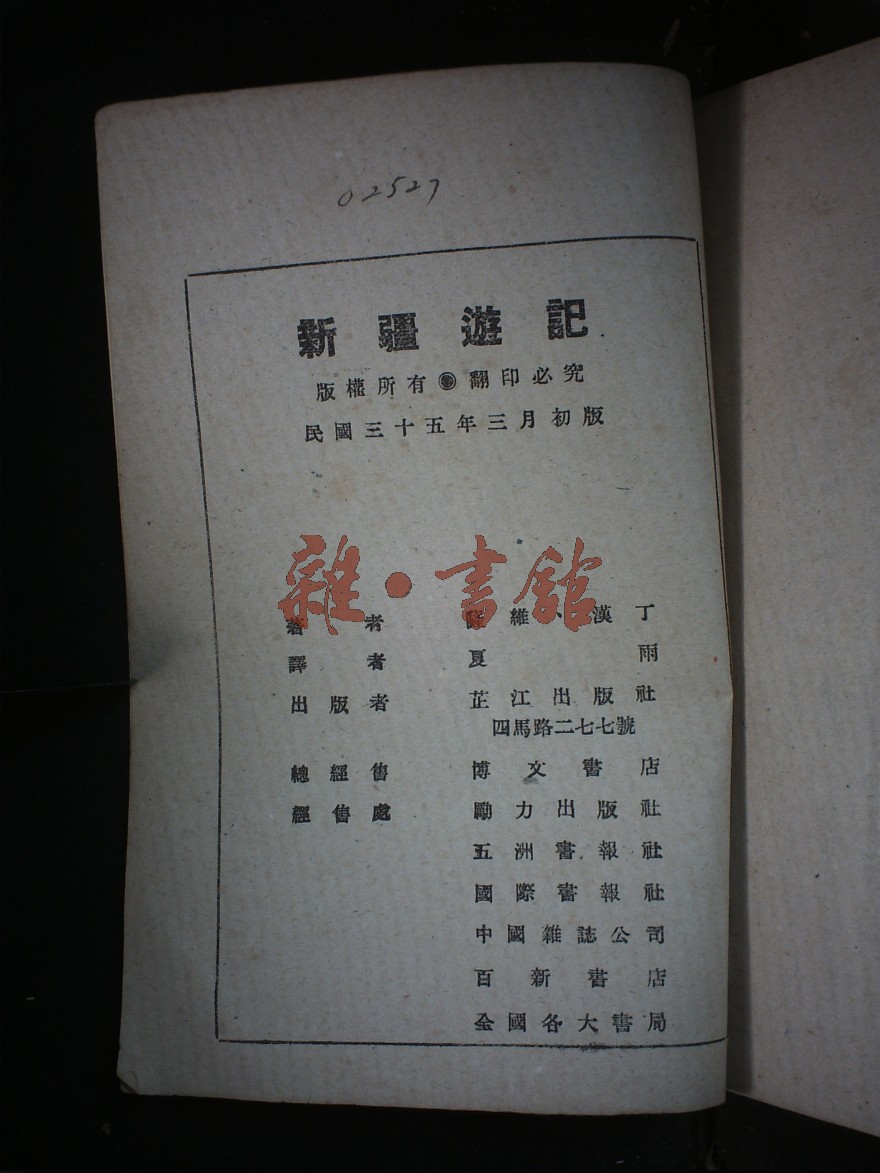 02527
新疆遊記
版權所有 翻印必究
民國三十五年三月初版
雜·書館
著者 維·漢丁
譯者 夏雨
出版者 芷江出版社
四馬路二七七號
總經售 博文書店
經售處 勵力出版社
五洲書報社
國際書報社
中國雜誌公司
百新書店
全國各大書局